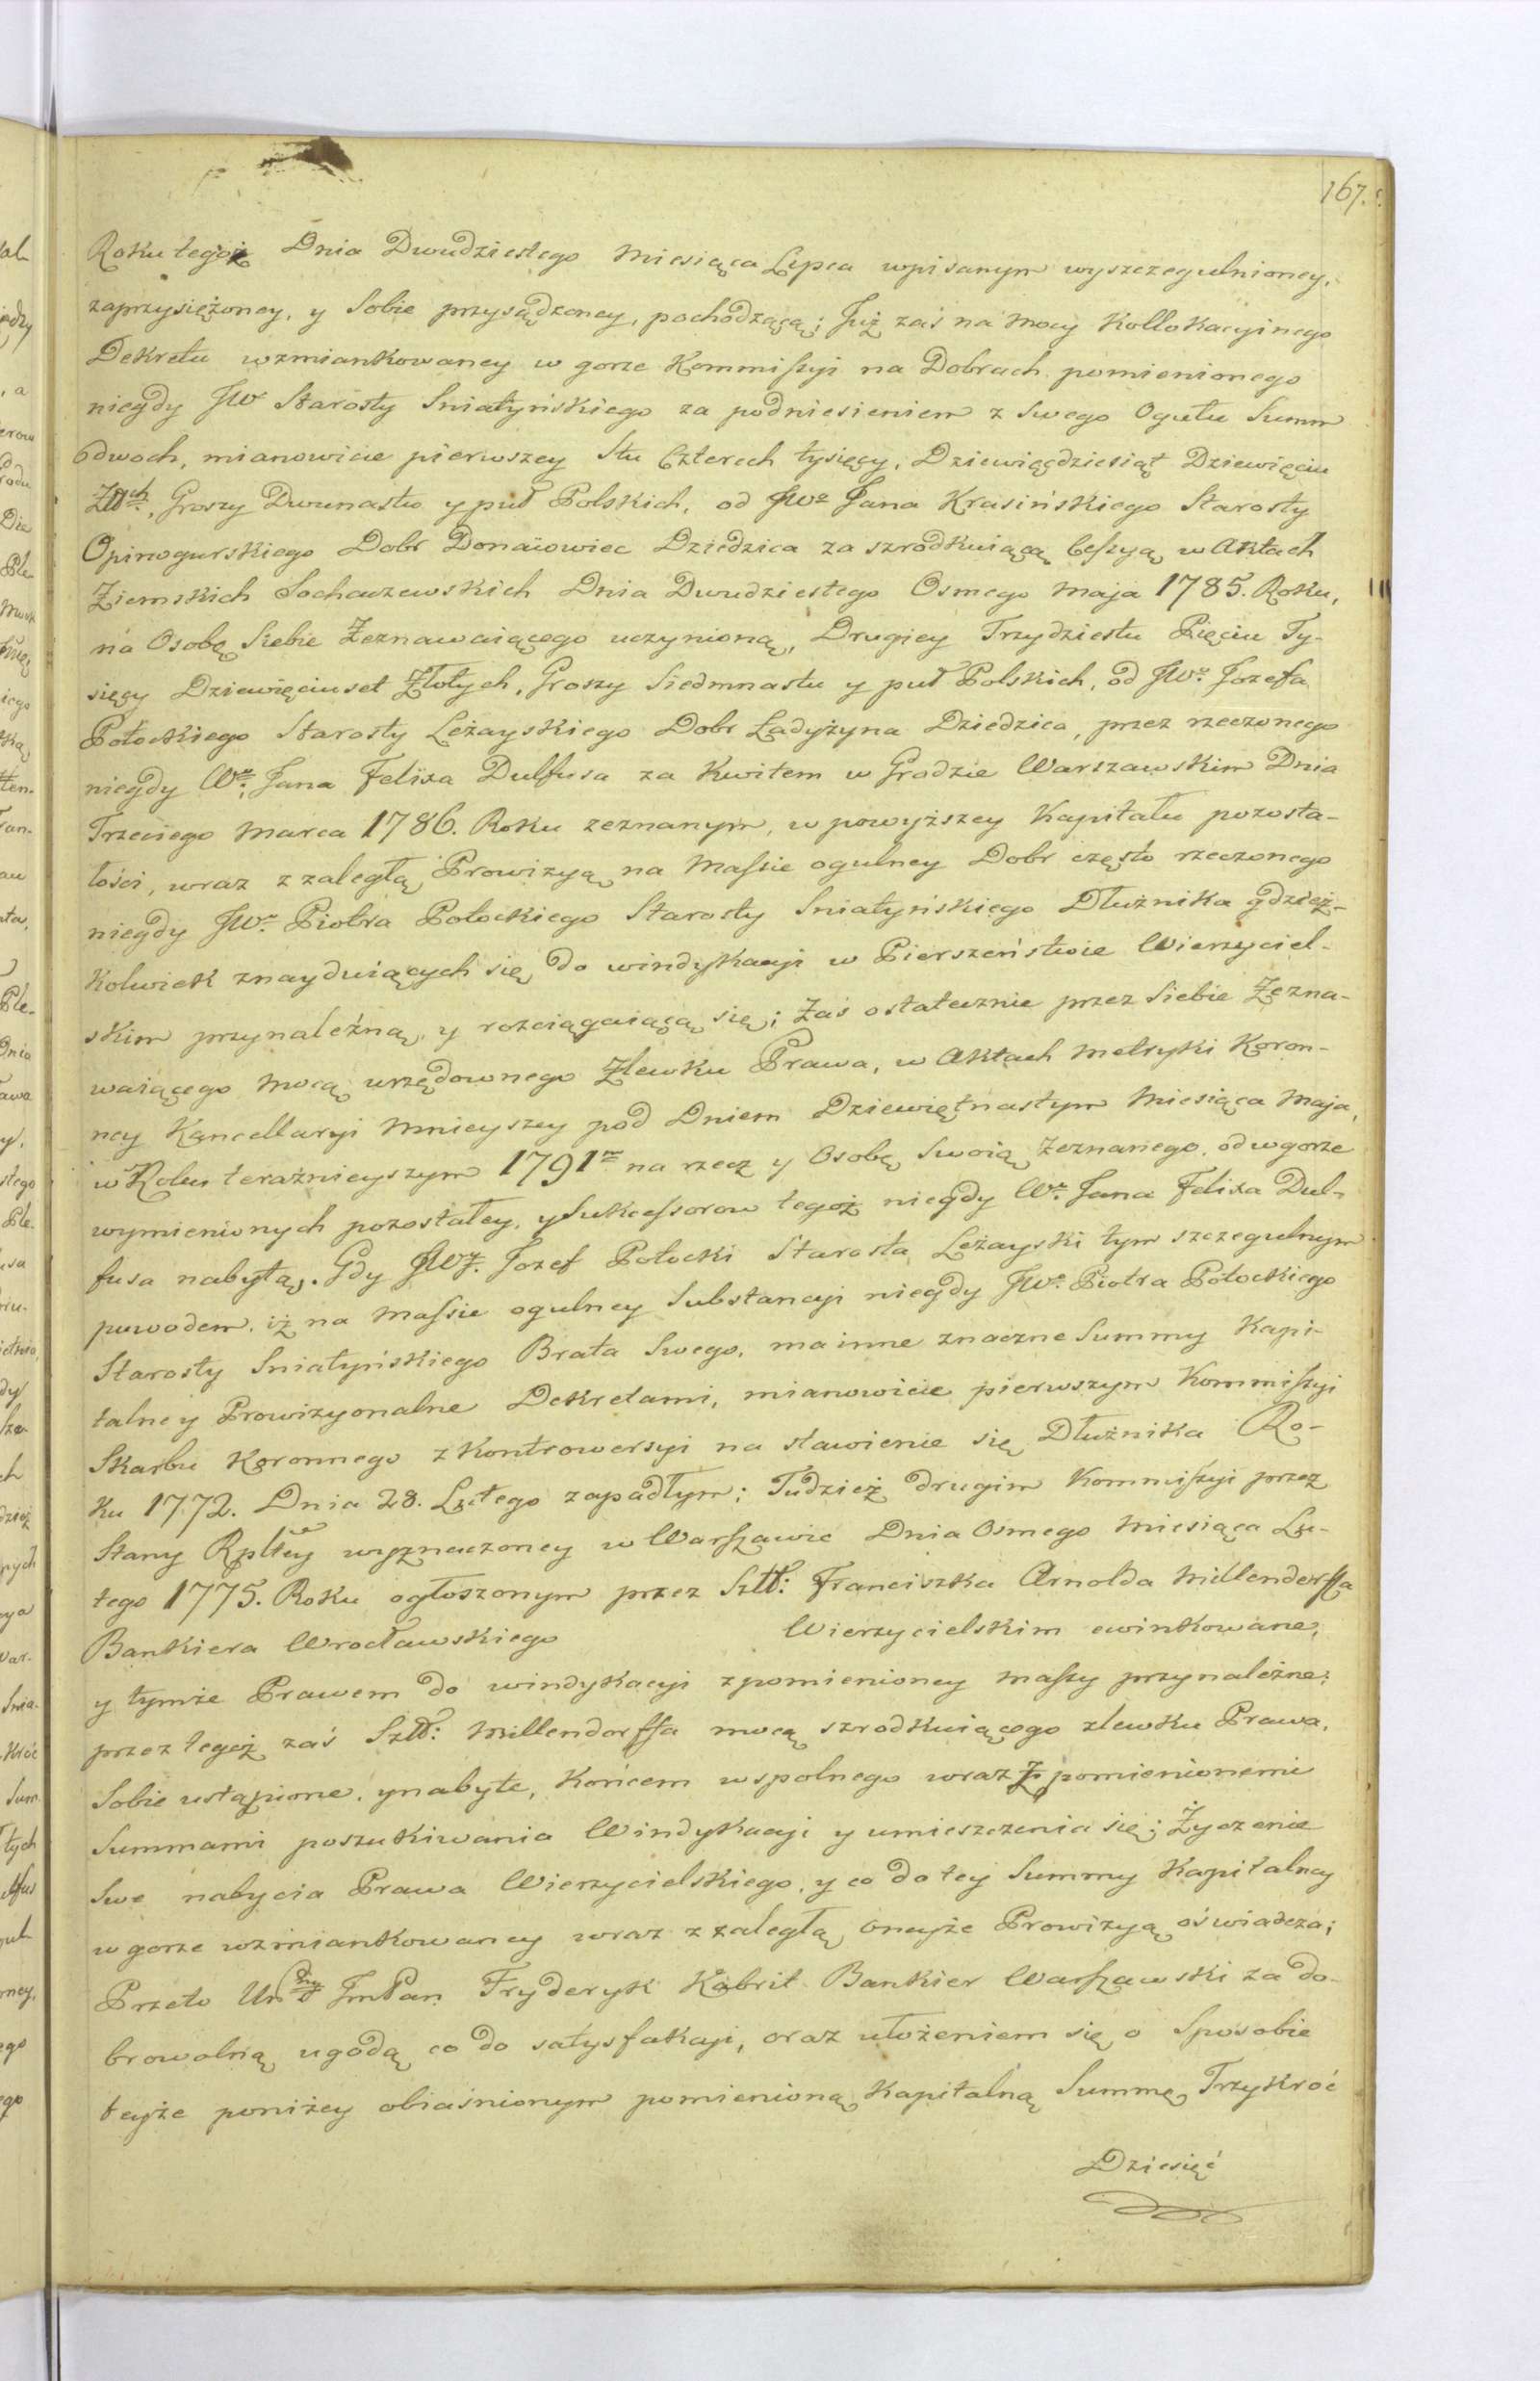 167.
Roku tegoż Dnia Dwudziestego Miesiąca Lipca wpisanym wyszczegulnioney,
zaprzysiężoney, y Sobie przysądzoney, pochodzącą; Już zaś na mocy Kollokacyinego
Dekretu wzmiankowaney w gorze Kommissyi na Dobrach pomienionego
niegdy JWo Starosty Sniatyńskiego za podniesieniem z Swego Ogułu Summ
dwoch, mianowicie pierwszey Stu Czterech tysięcy, Dziewięćdziesiąt Dziewięciu
Złłch, Groszy Dwunastu y puł Polskich, od JWo Jana Krasińskiego Starosty
Opinogurskiego Dobr Donaiowiec Dziedzica za szrodkuiącą Cessyą w Aktach
Ziemskich Sochaczewskich Dnia Dwudziestego Osmego Maja 1785. Roku,
na Osobę Siebie Zeznawaiącego uczynioną, Drugiey Trzydziestu Pięciu Ty-
sięcy Dziewięciuset Złotych, Groszy Siedmnastu y puł Polskich, od JWo. Jozefa
Potockiego Starosty Leżayskiego Dobr Ładyżyna Dziedzica, przez rzeczonego
niegdy Wo. Jana Felixa Dulfusa za Kwitem w Grodzie Warszawskim Dnia
Trzeciego Marca 1786. Roku zeznanym, w powyższey Kapitału pozosta-
łości, wraz z zaległą Prowizyą na Massie ogulney Dobr często rzeczonego
niegdy JWo. Piotra Potockiego Starosty Sniatyńskiego Dłużnika gdzież-
kolwiek znayduiących się do windykacyi w Pierszeństwie Wierzyciel-
skim przynależną, y rozciągaiącą się; Zaś ostatecznie przez Siebie Zezna-
waiącego mocą urzędownego Zlewku Prawa, w Aktach Metryki Koron-
ney Kancellaryi Mnieyszey pod Dniem Dziewiętnastym Miesiąca Maja,
w Roku teraźnieyszym 1791m na rzecz y Osobę Swoią Zeznanego, od w gorze
wymienionych pozostałey, y Sukcessorow tegoż niegdy Wo. Jana Felixa Dul-
fusa nabytą. Gdy JWJ. Jozef Potocki Starosta Leżayski tym szczegulnym
powodem, iż na Massie ogulney Substancyi niegdy JWo. Piotra Potockiego
Starosty Sniatyńskiego Brata Swego, ma inne znaczne Summy Kapi-
talne y Prowizyonalne Dekretami, mianowicie pierwszym Kommissyi
Skarbu Koronnego z Kontrowersyi na stawienie się Dłużnika Ro-
ku 1772. Dnia 28. Lutego zapadłym; Tudzież drugim Kommissyi przez
Stany Rpltey wyznaczoney w Warszawie Dnia Osmego Miesiąca Lu-
tego 1775. Roku ogłoszonym przez Szłł: Franciszka Arnolda Millendorffa
Bankiera Wrocławskiego Wierzycielskim ewinkowane,
y tymże Prawem do windykacyi z pomienioney Massy przynależne;
przez tegoż zaś Szłł: Millendorffa mocą szrodkuiącego zlewku Prawa,
Sobie ustąpione, y nabyte, Końcem wspolnego wraz z pomienionemi
Summami poszukiwania Windykacyi y umieszczenia się; Życzenie
Swe nabycia Prawa Wierzycielskiego, y co do tey Summy Kapitalney
w gorze wzmiankowaney wraz z zaległą oneyże Prowizyą oświadcza;
Przeto JmPan Fryderyk Kabrit Bankier Warszawski za do-
browolną ugodą co do satysfakcyi, oraz ułożeniem się o Sposobie
teyże poniżey obiaśnionym pomienioną Kapitalną Summę Trzykroć
Dziesięć